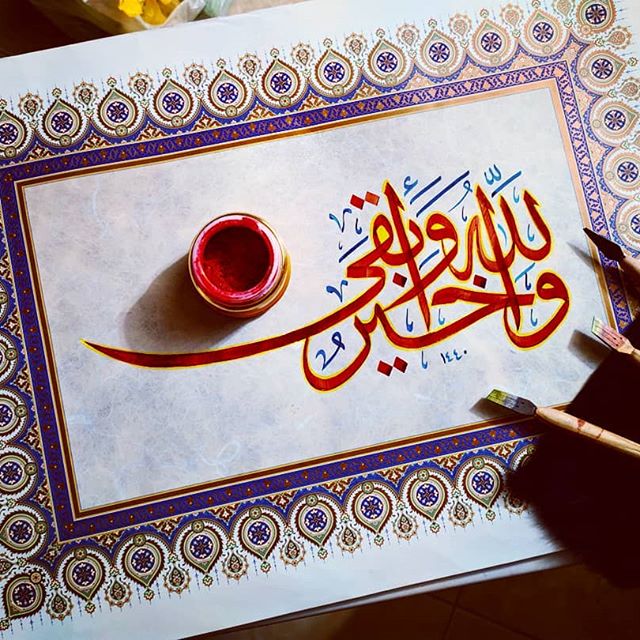 والله خير وأبقى
١٤٤٠